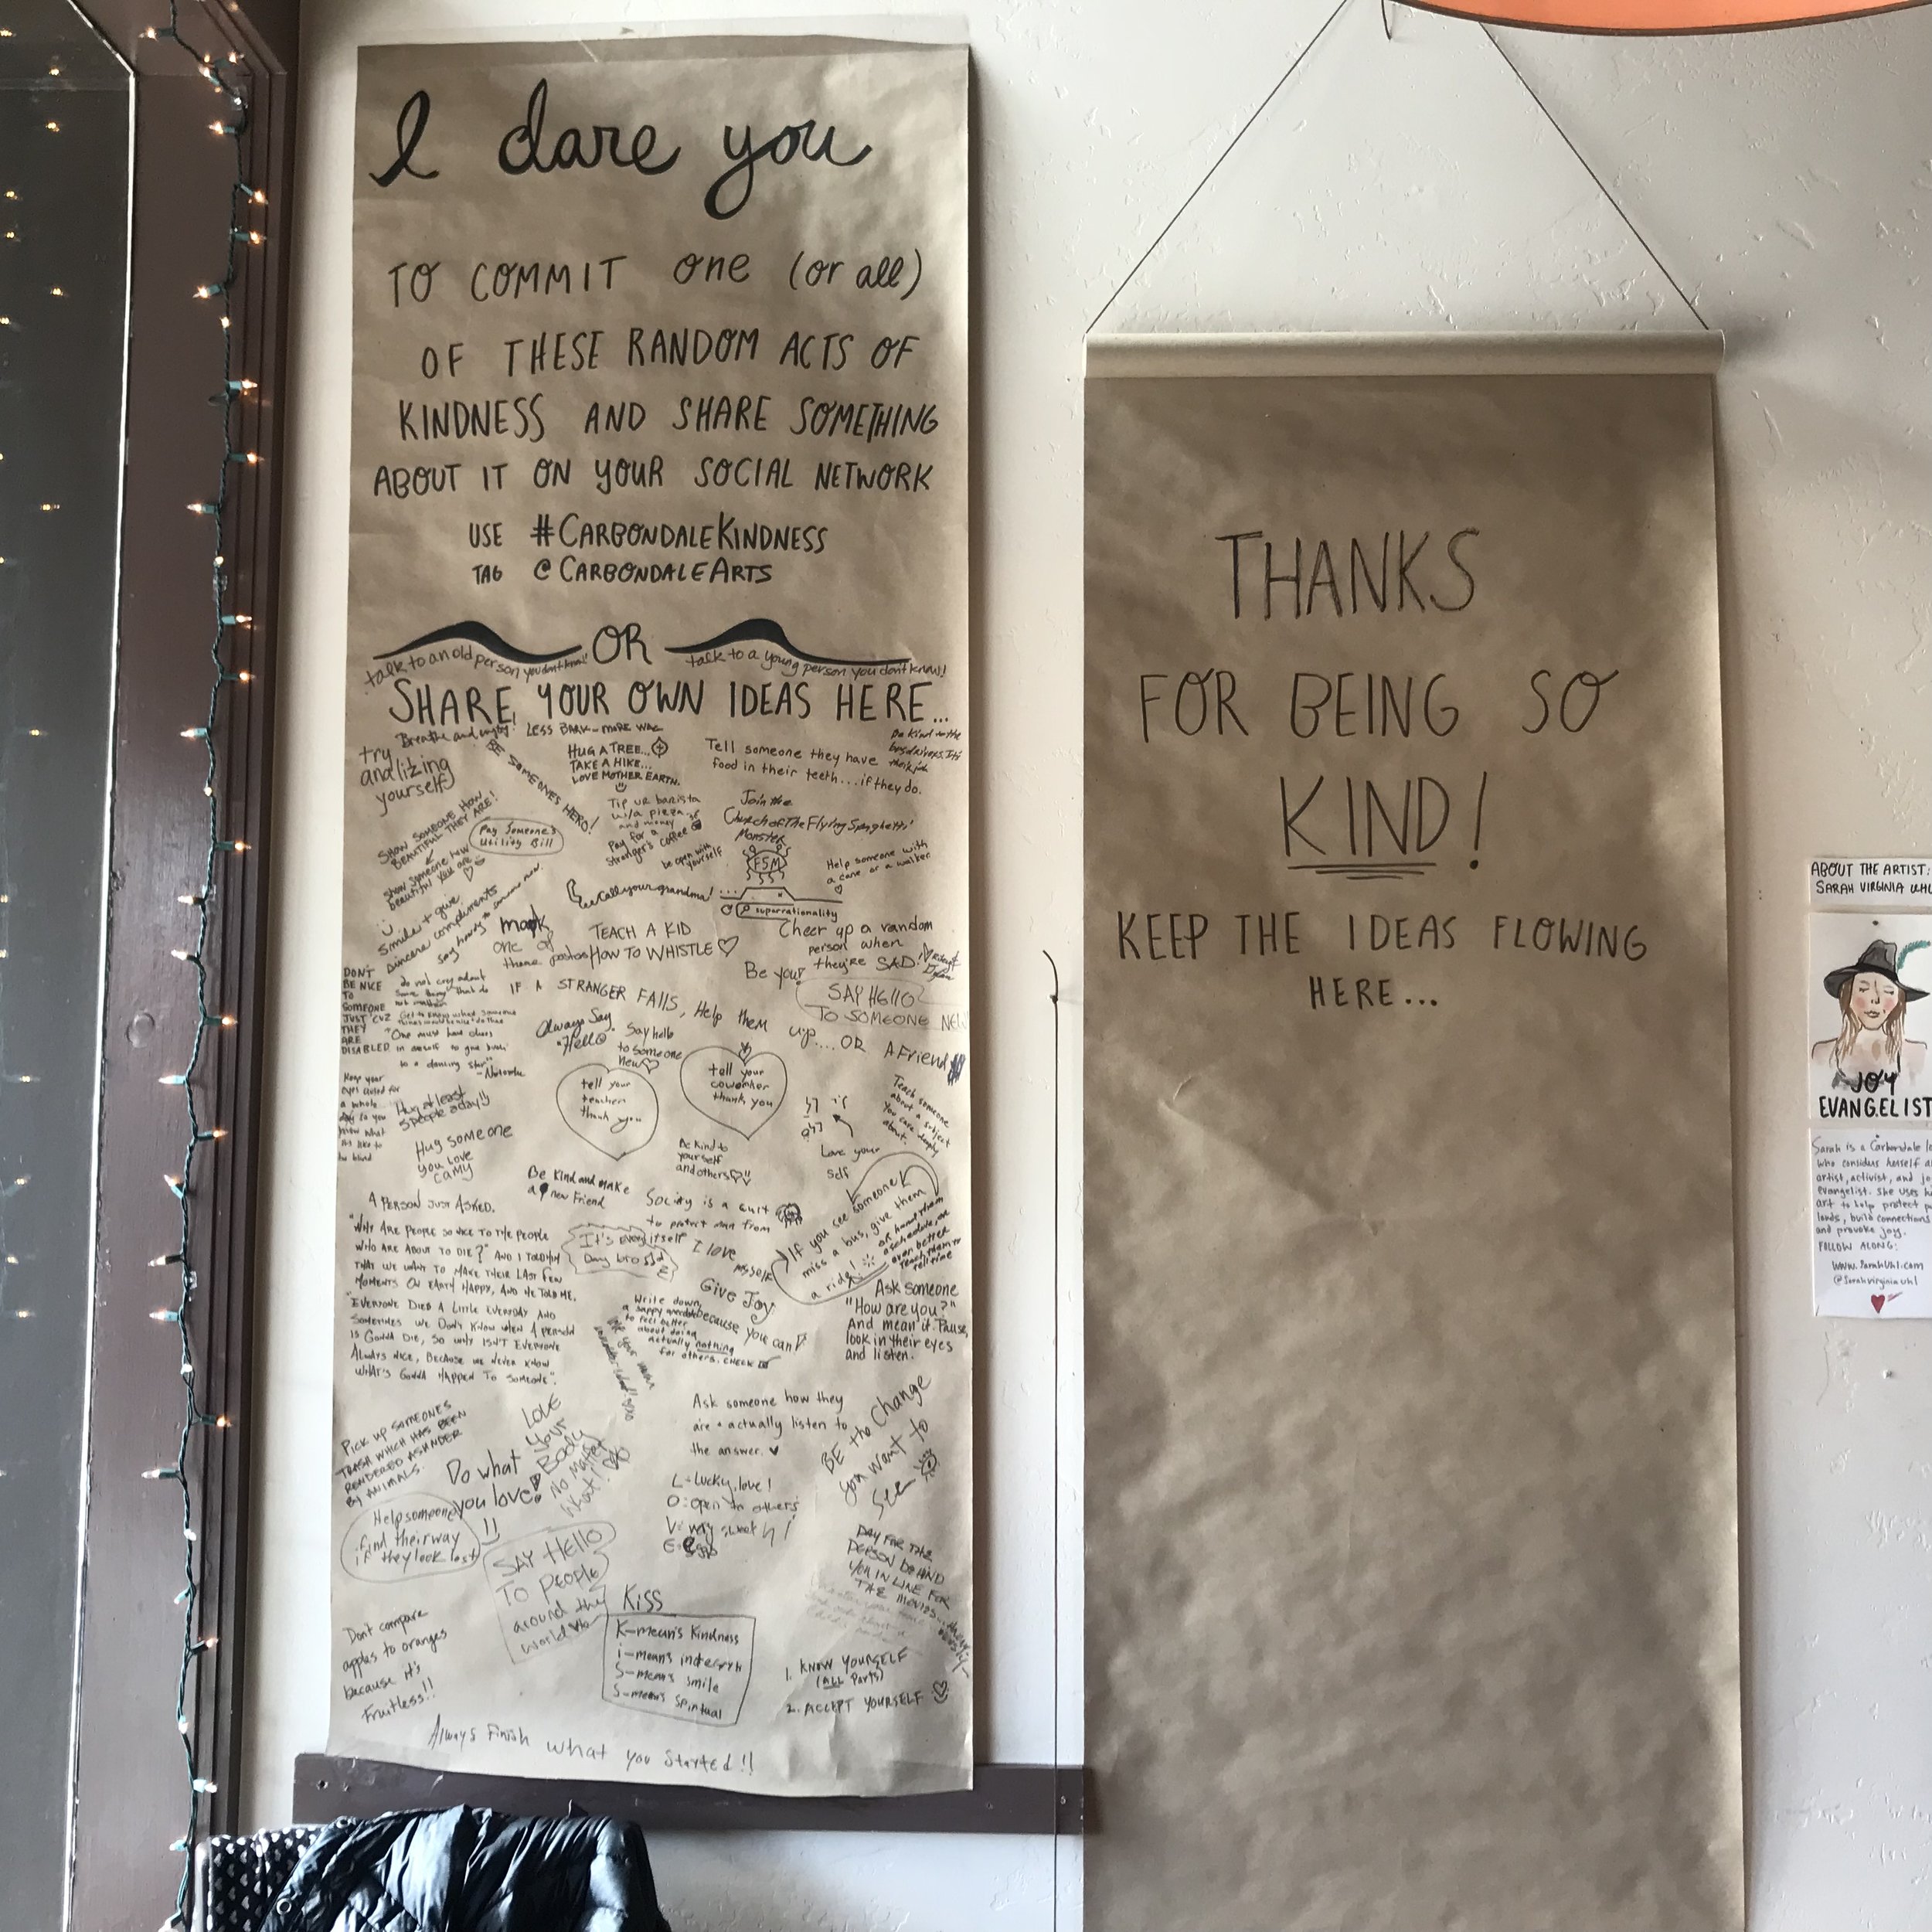 I dare you
TO COMMIT one (or all)
OF THESE RANDOM ACTS OF
KINDNESS AND SHARE SOMETHING
ABOUT IT ON YOUR SOCIAL NETWORK
USE #CARBONDALEKINDNESS
TAG @CARBONDALEARTS
OR
talk to an old person you don't know!
talk to a young person you don't know!
SHARE YOUR OWN IDEAS HERE...
Breathe and enjoy!
LESS BARK - MORE WAG
try
analizing
yourself
BE SOMEONES HERO!
HUG A TREE...
TAKE A HIKE...
LOVE MOTHER EARTH.
Tell someone they have
food in their teeth...if they do.
Be kind to the
bus drivers.
SHOW SOMEONE HOW
BEAUTIFUL THEY ARE!
Show someone how
beautiful you are
Pay Someone's
Utility Bill
Tip ur barista
w/a pizza
and money
Pay for a
stranger's coffee
be open with
yourself
Join the
Church of The Flying Spaghetti
Monster
FSM
superrationality
Help someone with
a cane or a walker
Call your grandma!
Smile + give
sincere compliments
mook
one of
these
TEACH A KID
HOW TO WHISTLE
Cheer up a random
person when
they're SAD!
Be you!
DON'T
BE NICE
TO
SOMEONE
JUST 'CUZ
THEY
ARE
DISABLED
do not cry about
some thing that do
not matter
"One must have chaos
in oneself to give birth
to a dancing star"
IF A STRANGER FALLS, Help them up.... OR A Friend
SAY HELLO
TO SOMEONE NEW
Always Say
"Hello"
Say hello
to someone
new
tell your
teacher
thank you
tell your
coworker
thank you
Keep your
eyes closed for
a whole
day so you
know what
its like to
be blind
Hug at least
5 people a day!!
Hug someone
you love
CAMY
Teach someone
about a subject
you care deeply
about.
Love your
self
Be kind to
yourself
and others
Be Kind and make
a new Friend
A PERSON JUST ASKED,
"WHY ARE PEOPLE SO NICE TO THE PEOPLE
WHO ARE ABOUT TO DIE?" AND I TOLD HIM
THAT WE WANT TO MAKE THEIR LAST FEW
MOMENTS ON EARTH HAPPY, AND HE TOLD ME,
"EVERYONE DIES A LITTLE EVERYDAY AND
SOMETIMES WE DON'T KNOW WHEN A PERSON
IS GONNA DIE, SO WHY ISN'T EVERYONE
ALWAYS NICE, BECAUSE WE NEVER KNOW
WHAT'S GONNA HAPPEN TO SOMEONE".
Society is a cult
to protect man from
itself
I love
myself
If you see someone
miss a bus, give them
a ride!
or hand them
a schedule, or
even better
teach them to
tell time
Give Joy
because you can
Write down
a sappy anecdote
to feel better
about doing
actually nothing
for others. CHECK
Ask someone
"How are you?"
And mean it. Pause,
look in their eyes
and listen.
Ask someone how they
are + actually listen to
the answer.
BE the Change
you want to
See
PICK UP SOMEONES
TRASH WHICH HAS BEEN
RENDERED ASUNDER
BY ANIMALS.
LOVE
Your
Body
No Matter
What!
Do what
you love!
Help someone
find their way
if they look lost
L=Lucky, love!
O:open to others
SAY HELLO
TO PEOPLE
around the
world
PAY FOR THE
PERSON BEHIND
YOU IN LINE FOR
THE MOVIES..
KISS
K-means Kindness
i-means integrity
S-means smile
S-means Spiritual
Don't compare
apples to oranges
because it's
Fruitless!!
1. KNOW YOURSELF
(ALL Parts)
2. ACCEPT YOURSELF
Always Finish what you Started!!
THANKS
FOR BEING SO
KIND!
KEEP THE IDEAS FLOWING
HERE...
ABOUT THE ARTIST:
SARAH VIRGINIA UHL
JOY
EVANGELIST
Sarah is a Carbondale
who considers herself
artist, activist, and
evangelist. She uses
art to help protect
lands, build connections
and provoke joy.
FOLLOW ALONG:
www.SarahUhl.com
@Sarahvirginiauhl